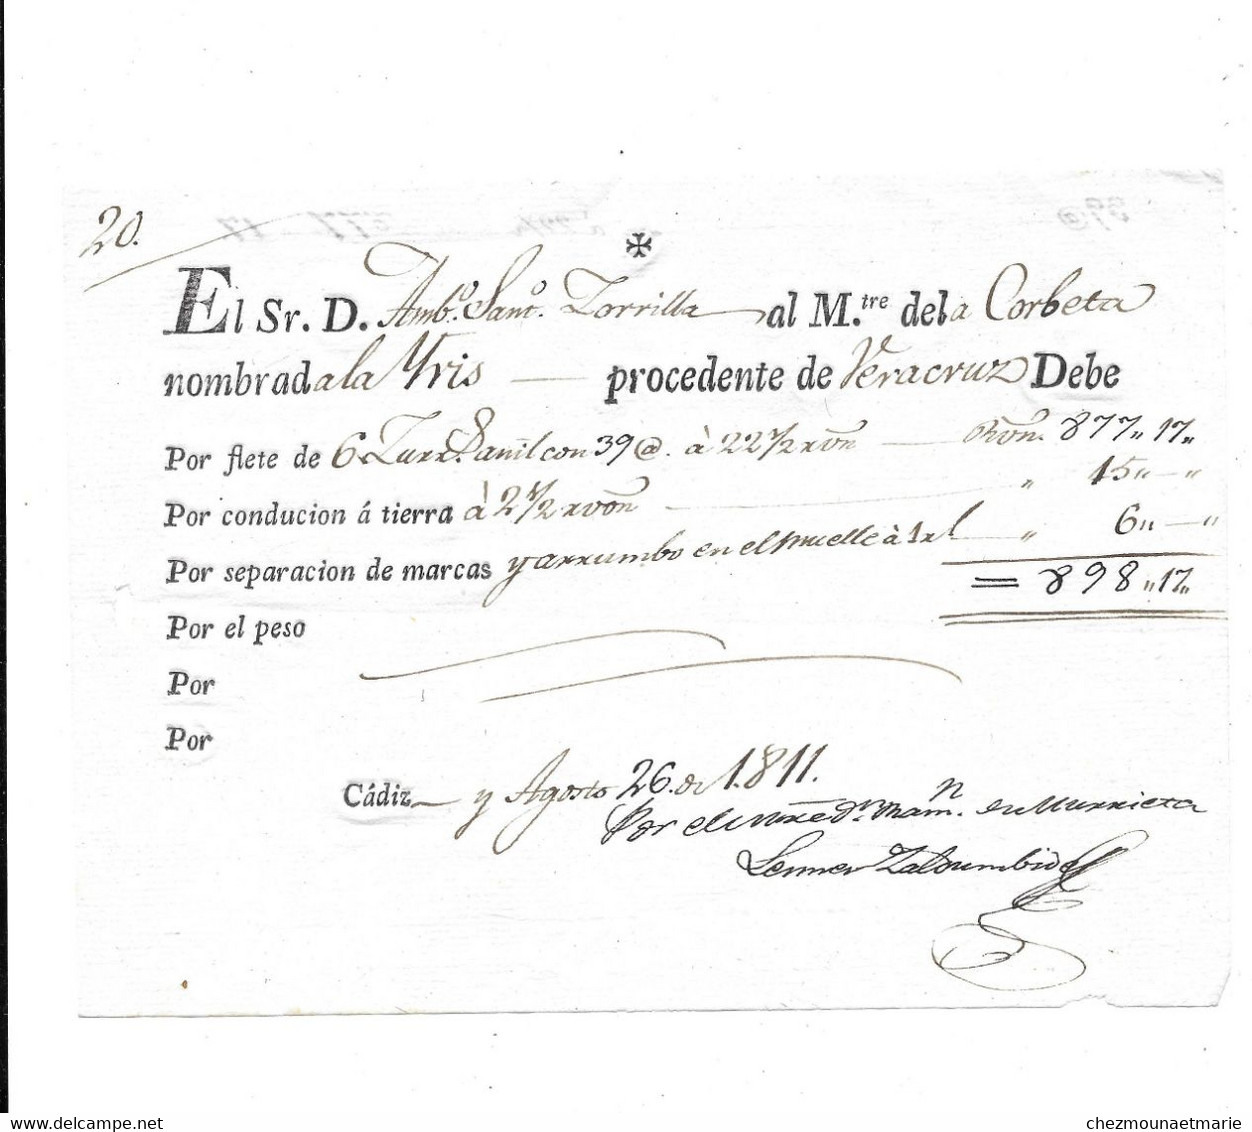 20.
✠
El Sr. D. Ambº. Sanº. Zorrilla al M.tre dela Corbeta
nombradala Yris — procedente de Veracruz Debe
Por flete de 6 Zurrs. añil con 39 @. à 22 1/2 rvon — Rvon. 877,, 17,,
Por conducion á tierra à 2 1/2 rvon — ,, 15,, — ,,
Por separacion de marcas y arrumbo en el muelle à 1 rl ,, 6,, — ,,
= 898,, 17,,
Por el peso
Por
Por
Cádiz y Agosto 26. de 1.811.
Por el Mre Dn. Ramn. de Murrieta
Zaldumbide
chezmounaetmarie